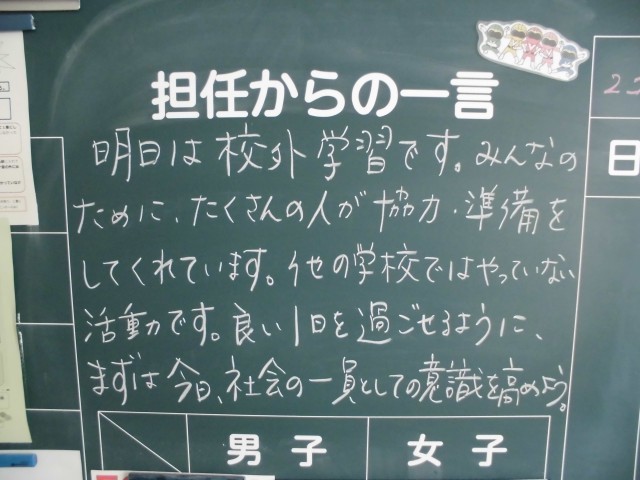 担任からの一言
明日は校外学習です。みんなの
ために、たくさんの人が協力・準備を
してくれています。他の学校ではやっていない
活動です。良い1日を過ごせるように、
まずは今日、社会の一員としての意識を高めよう。
男子
女子
日